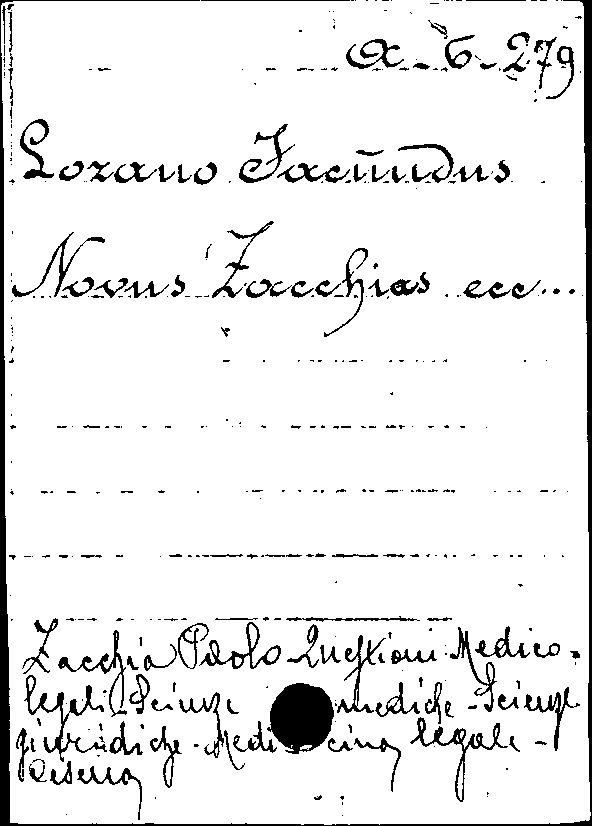 α-6-279
Lozano Facundus
Novus Zacchias ecc...
Zacchia Paolo Questioni Medico-
legali-Scienze mediche-Scienze
giuridiche-Medicina legale-